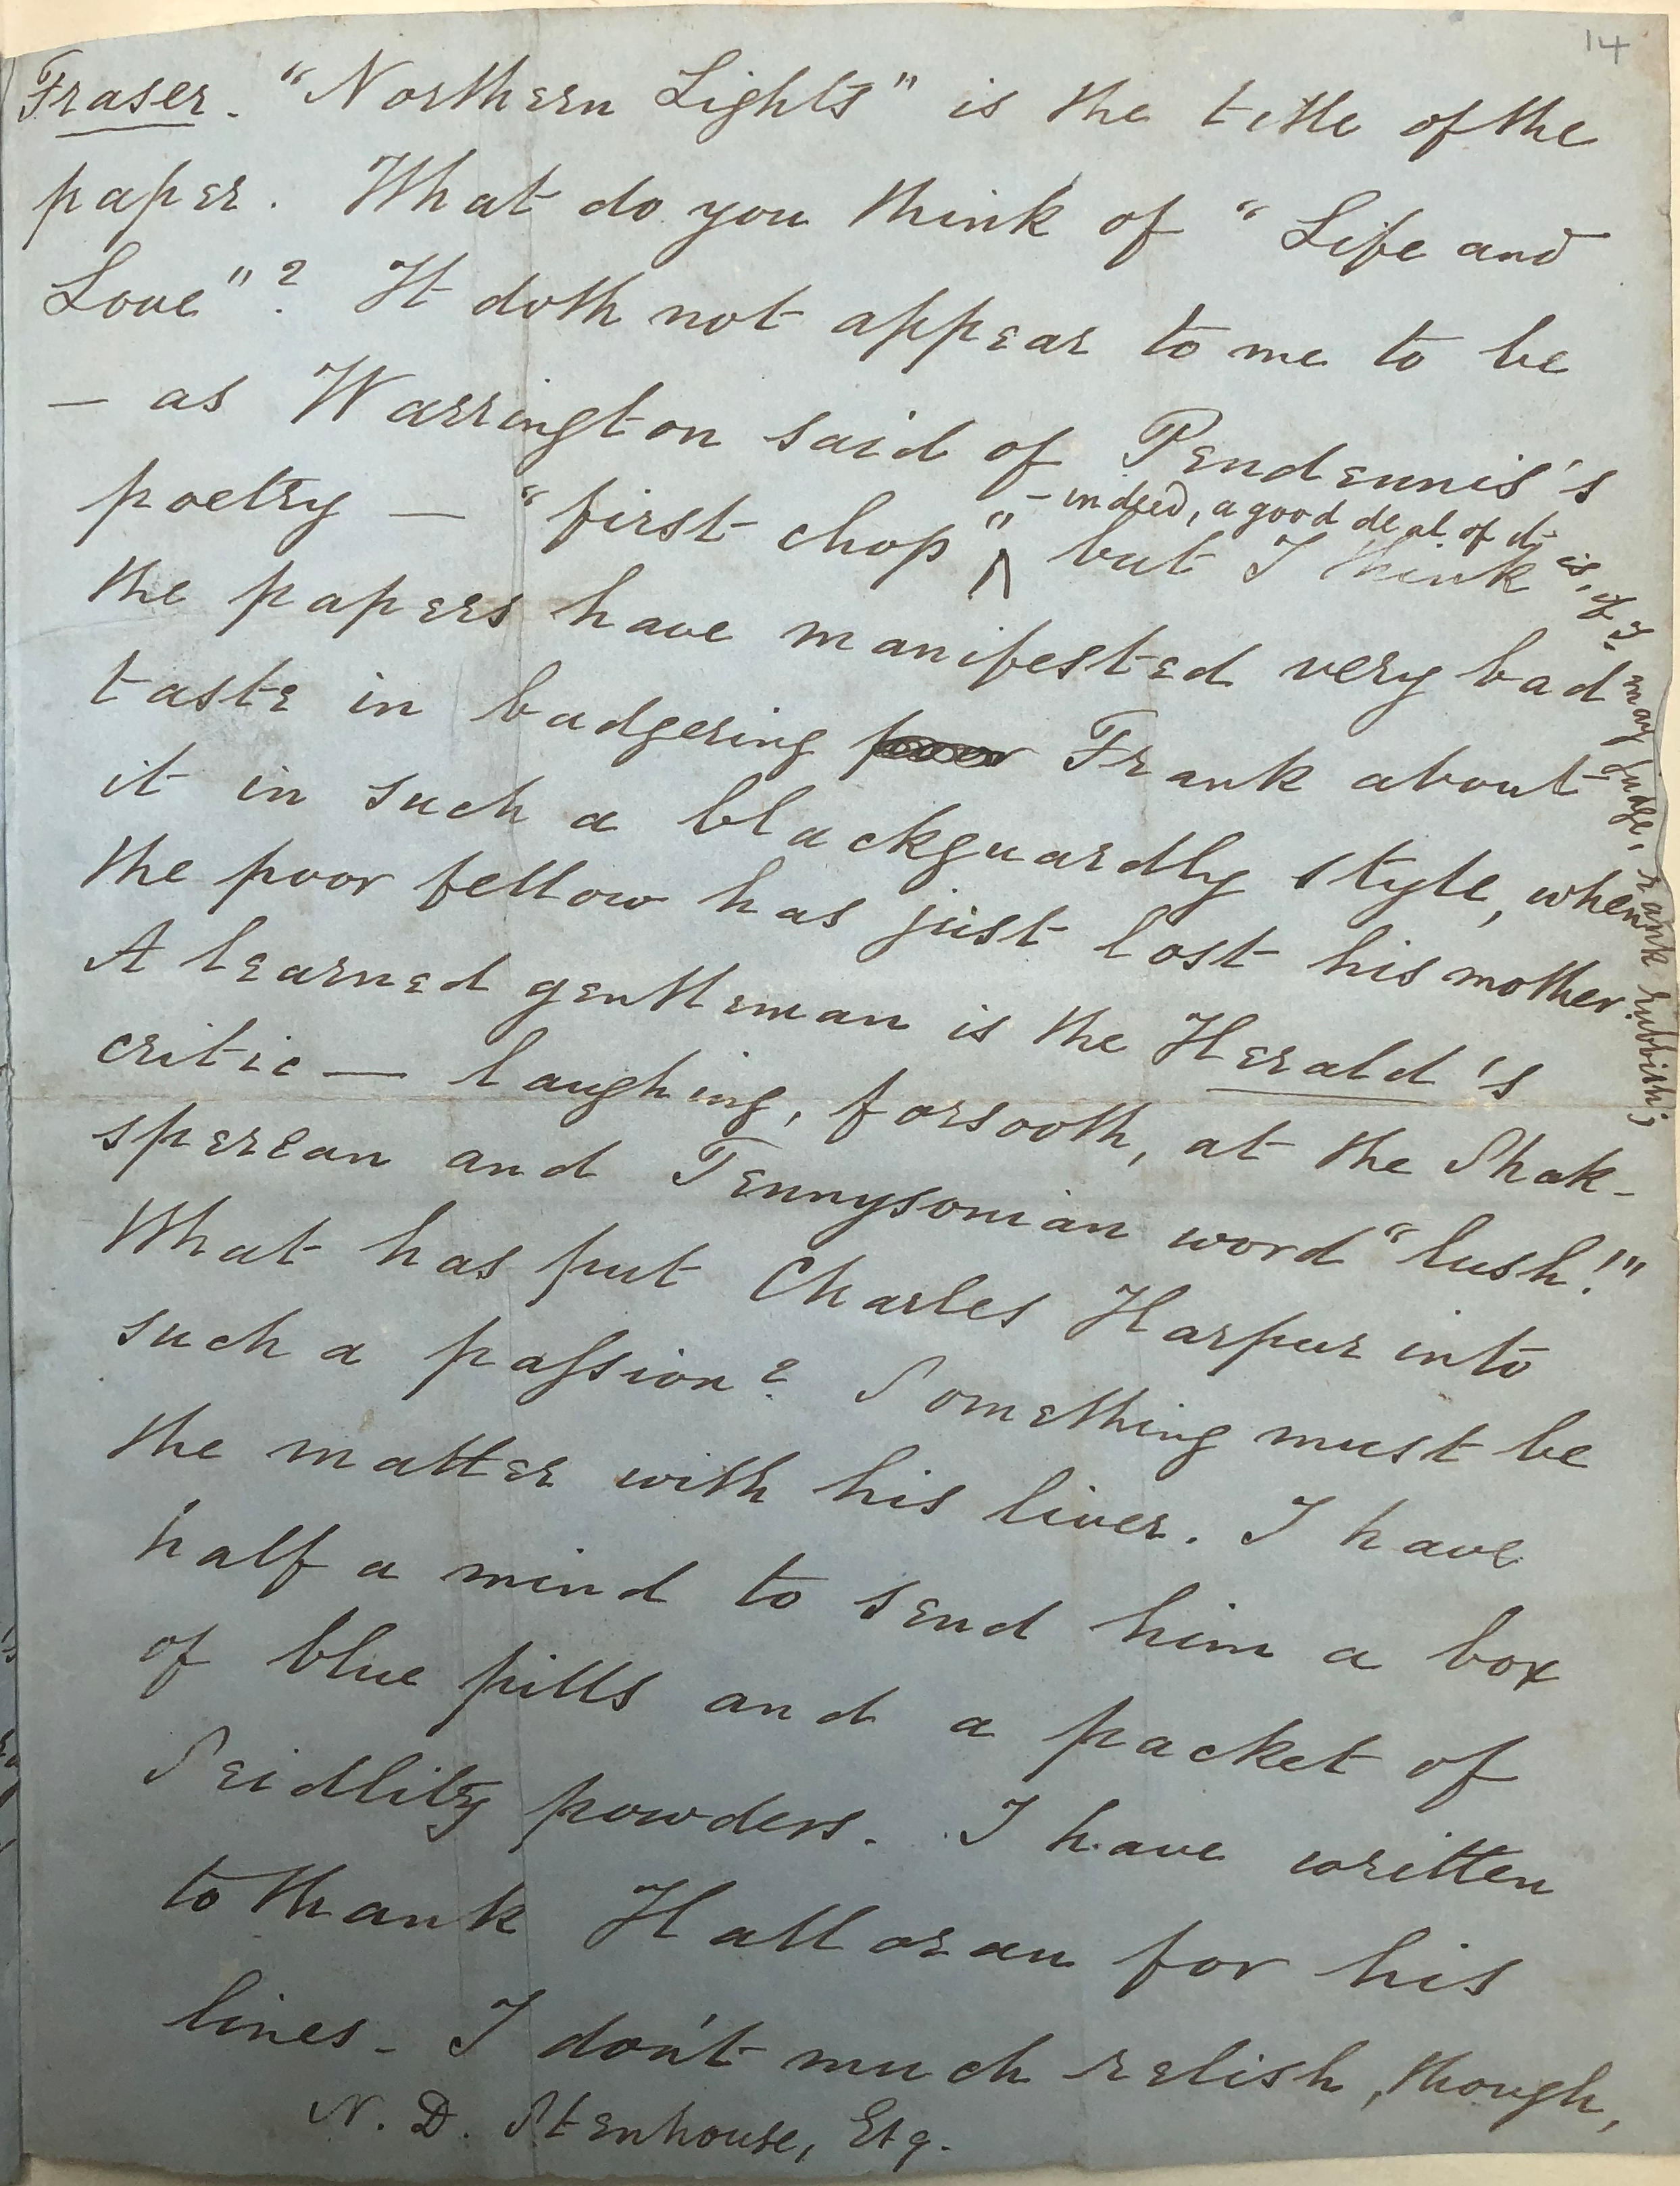 14
Fraser. "Northern Lights" is the title of the
paper. What do you think of "Life and
Love"? It doth not appear to me to be
— as Warrington said of Pendennis's
poetry — "first chop" but I think
— indeed, a good deal of it is, if I may judge, rank rubbish;
the papers have manifested very bad
taste in badgering poor Frank about
it in such a blackguardly style, when
the poor fellow has just lost his mother.
A learned gentleman is the Herald's
critic — laughing, forsooth, at the Shak-
sperean and Tennysonian word "lush!"
What has put Charles Harpur into
such a passion? Something must be
the matter with his liver. I have
half a mind to send him a box
of blue pills and a packet of
Seidlitz powders. I have written
to thank Halloran for his
lines. I don't much relish, though,
N. D. Stenhouse, Esq.